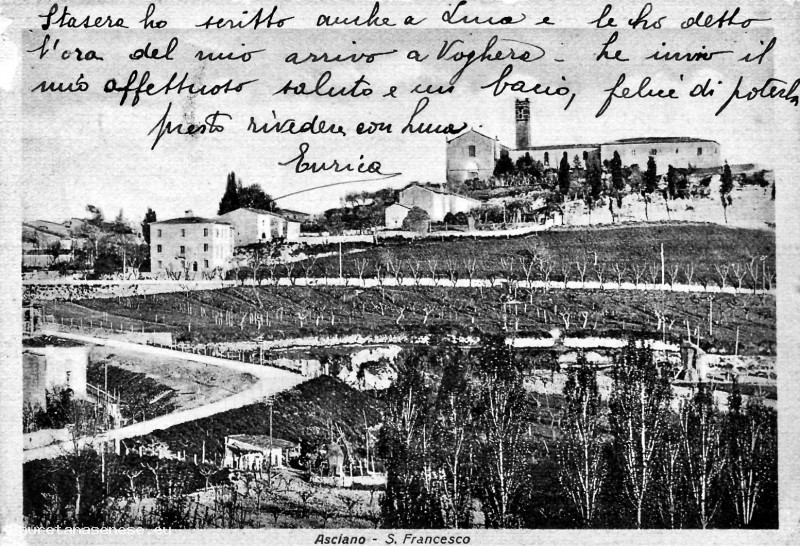 Stasera ho scritto anche a Luisa e le ho detto
l'ora del mio arrivo a Voghera - Le invio il
mio affettuoso saluto e un bacio, felice di poterla
presto rivedere con Luisa
Enrica
Asciano - S. Francesco